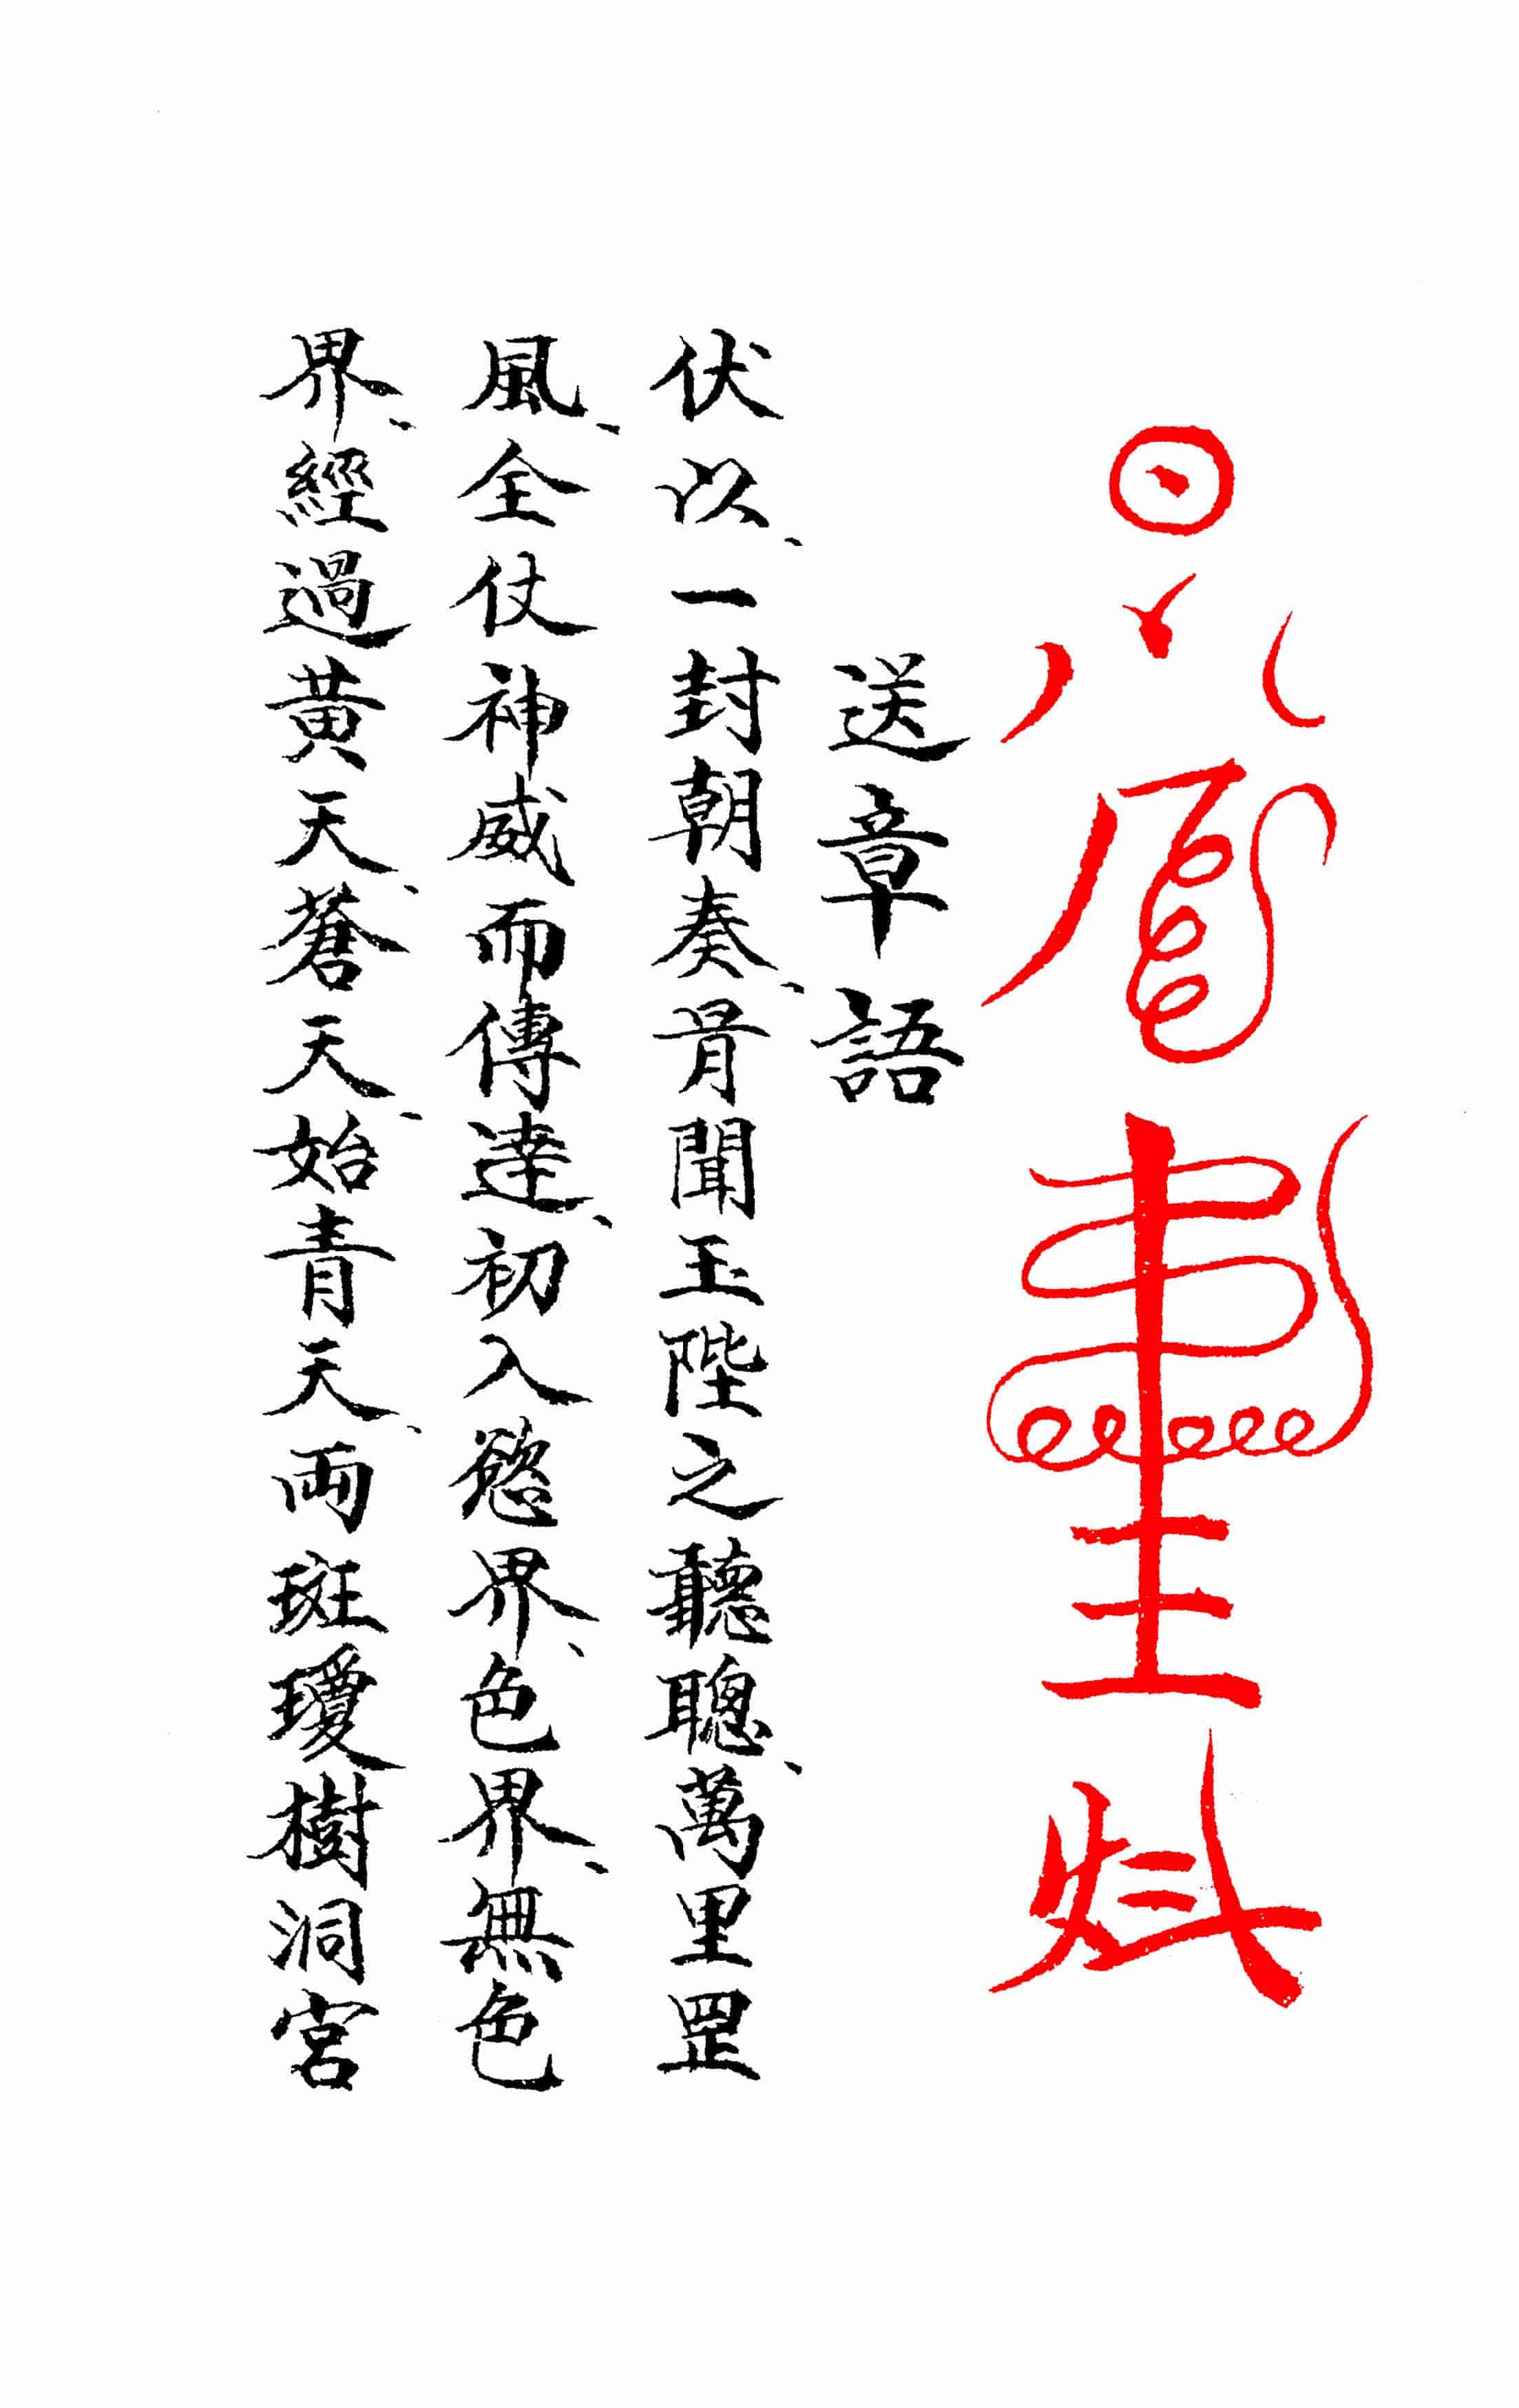 送章語
伏以、一封朝奏、胥聞玉陛之聽聰、萬里罡
風、全仗神威而傳達、初入慾界、色界、無色
界、經過黃天、蒼天、始青天、両斑瓊樹洞宮